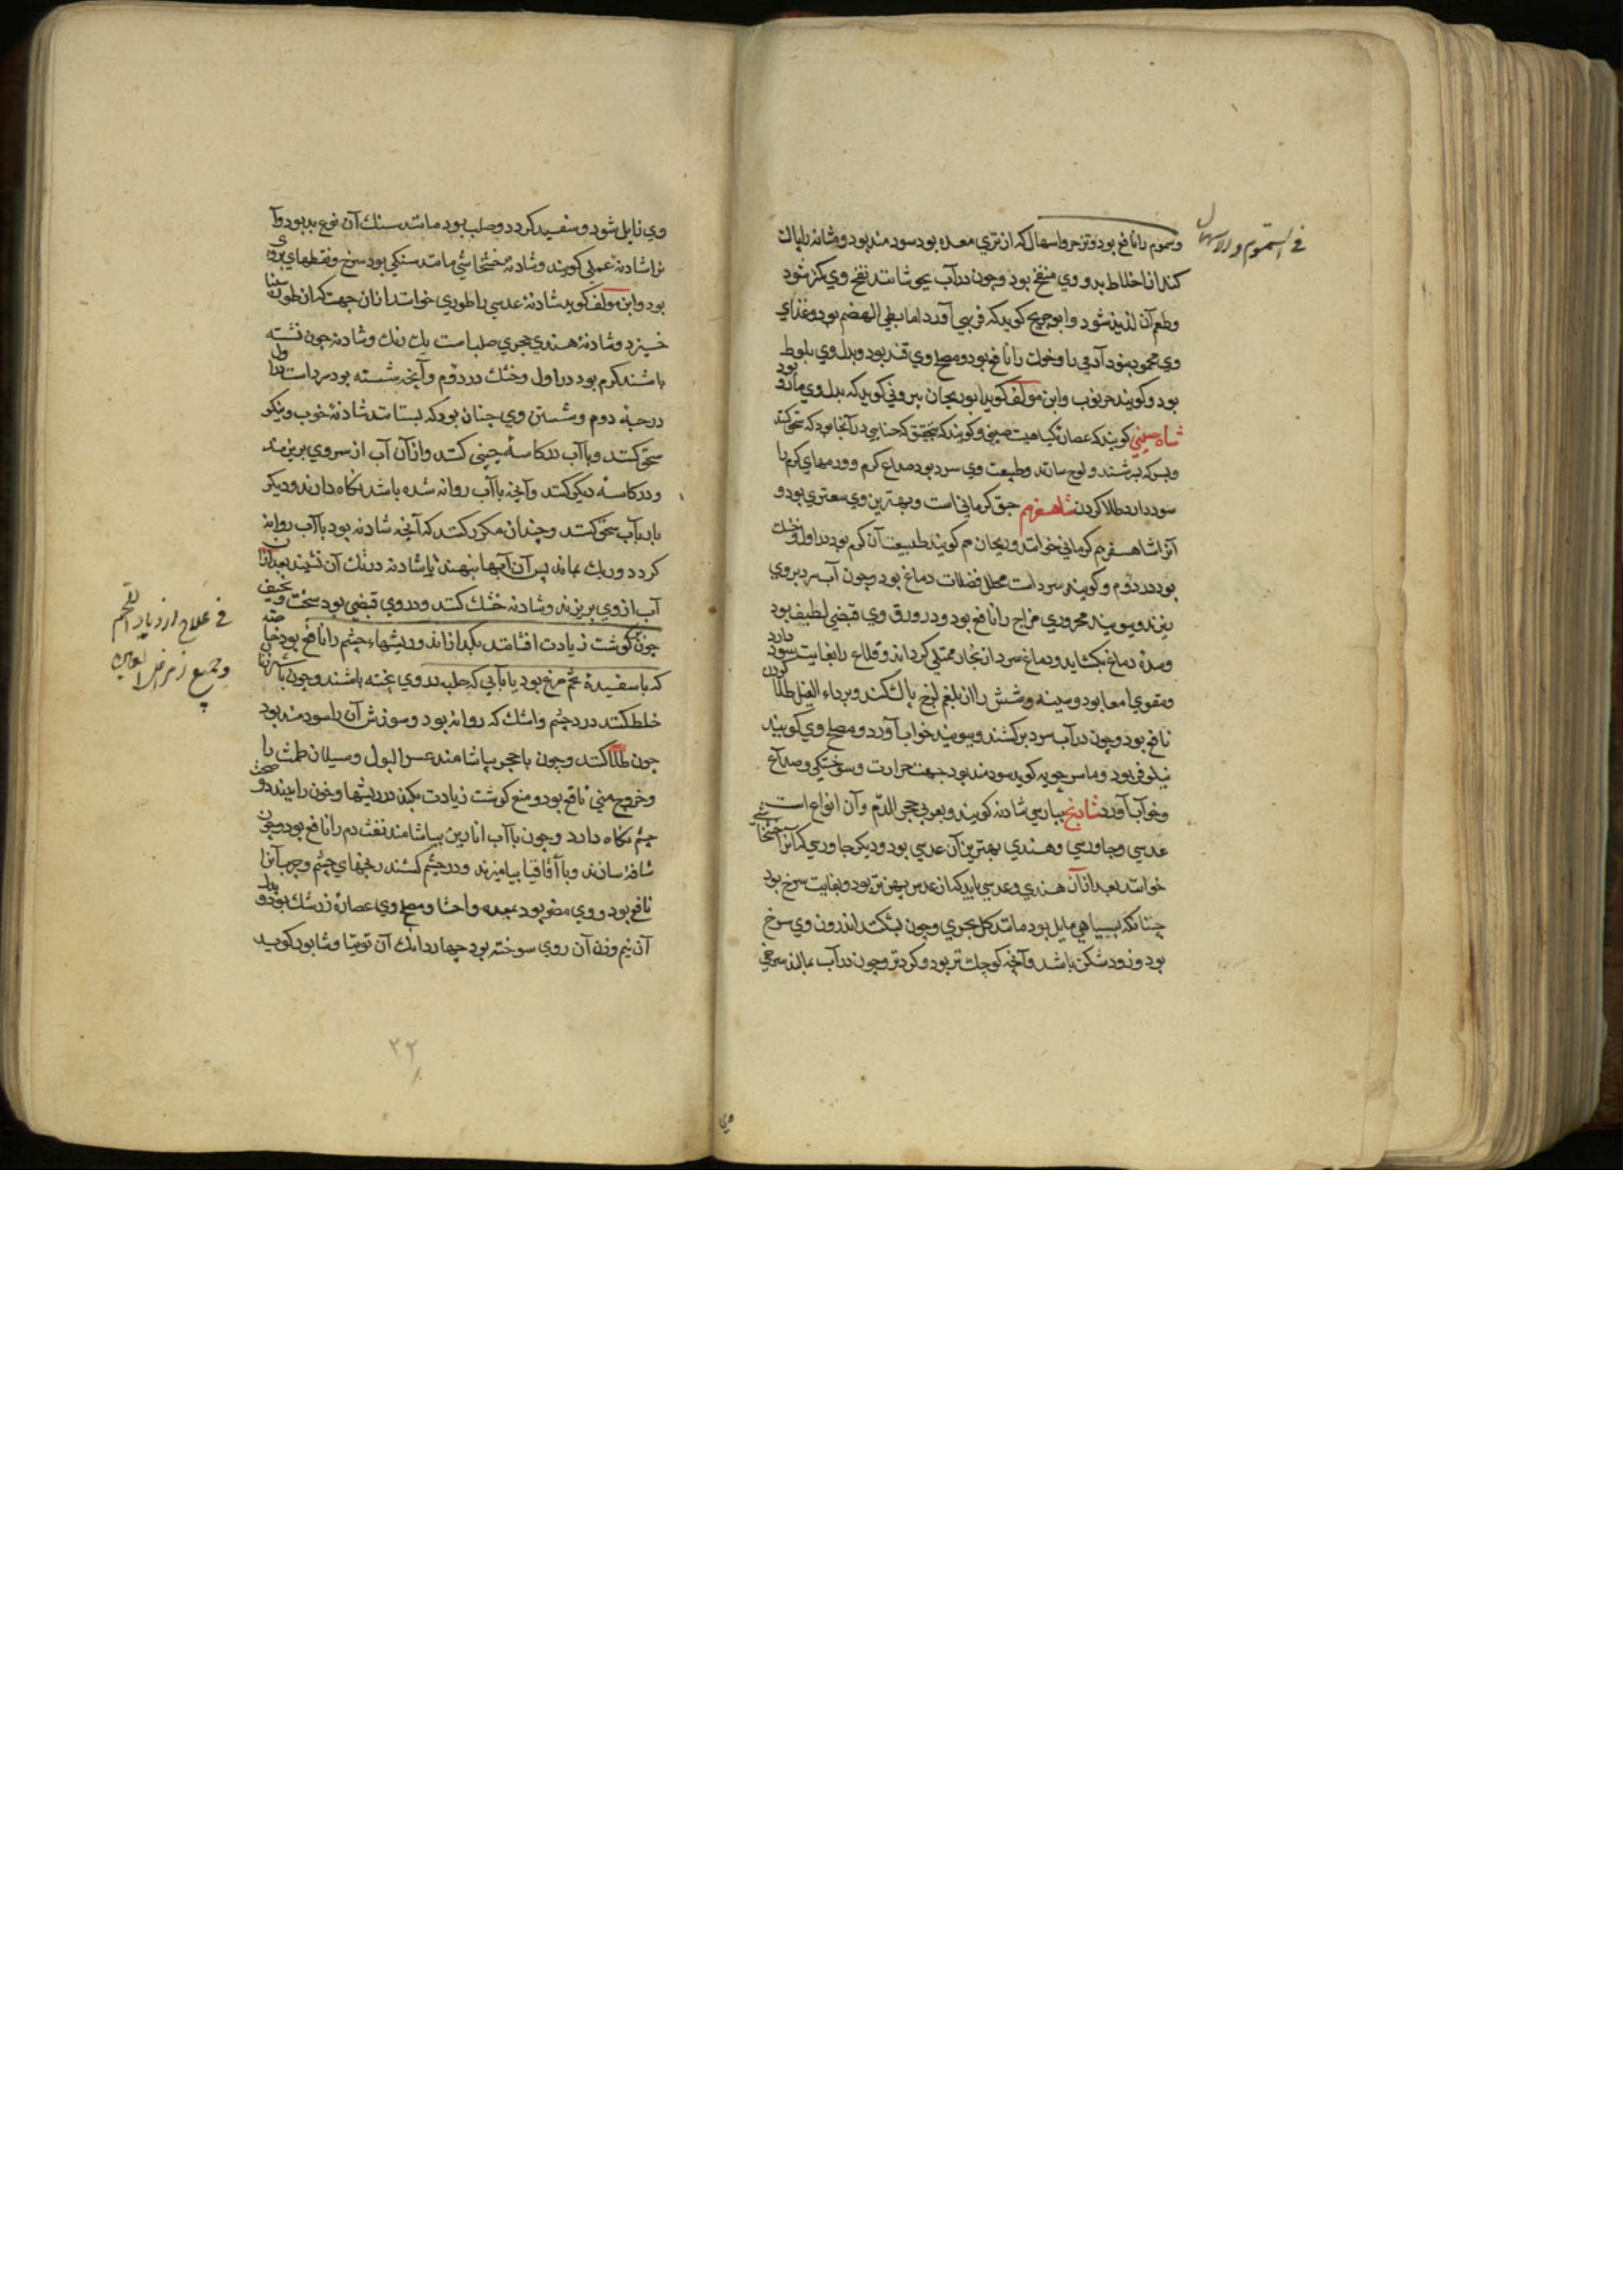 في السموم والاسهال
وسموم را نافع بود و تزحر و اسهال که از تری معده بود سودمند بود و مثانه را پاک
کند از اخلاط بد و وی منفخ بود و چون در آب بجوشانند نفخ وی کمتر شود
و طعم آن لذیذ شود و ابو جریح کوید که فربهی آورد اما بطی الهضم بود و غذای
وی محمود بود آدمی را و خوک را نافع بود و مصلح وی قند بود و بدل وی بلوط
بود و کویند خرنوب و ابن مولف کوید ابوریحان بیرونی کوید که بدل وی مازو بود
شاه صینی کویند که عصاره کیاهیست صینی و کویند که بتحقیق که حنایی در آنجا بود که سحق کنند
و بسرکه بسرشند و لوح سازند و طبیعت وی سرد بود صداع کرم و ورمهای کرم را
سود دارد طلا کردن شاهسفرم حبق کرمانی است و بهترین وی سعتری بود و
آنرا شاهسفرم کرمانی خوانند و ریحان هم کویند طبیعت آن کرم بود در اول و خشک
بود در دوم و کویند سرد است محلل فضلات دماغ بود و چون آب سرد بر وی
ریزند و ببویند محروری مزاج را نافع بود و در ورق وی قبضی لطیف بود
و سده دماغ بکشاید و دماغ سرد از بخار ممتلی کرداند و قلاع را بغایت سود دارد
و مقوی امعا بود و سینه و شش را از بلغم لزج پاک کند و بر داء الفیل طلا کردن
نافع بود و چون در آب سرد برکشند و ببویند خواب آورد و مصلح وی کویند
نیلوفر بود و ماسرجویه کوید سودمند بود جهت حرارت و سوختکی و صداع
و خواب آورد شادنج بپارسی شادنه کویند و بعربی حجر الدّم و آن انواع است
عدسی و جاورسی و هندی بهترین آن عدسی بود و دیکر جاورسی که آنرا خشخاشی
خوانند بعد از آن هندی و عدسی باید که از عدس پهن تر بود و بغایت سرخ بود
چنانکه بسیاهی مایل بود مانند کل بحری و چون بشکنند اندرون وی سرخ
بود و زود شکن باشد و آنچه کوچک تر بود و کردتر و چون در آب بمالند سرخی
وی
وی زایل شود و سفید کردد و صلب بود مانند سنک آن نوع بد بود و آ
نرا شادنه عملی کویند و شادنه خشخاشی مانند سنکی بود سرخ و نقطهای بروی
بود و ابن مولف کوید شادنه عدسی را طوری خوانند از آن جهت که از طور سینا
خیزد و شادنه هندی حجری صلبست یک رنک و شادنه چون نشسته
باشند کرم بود در اول و خشک در دوم و آنچه شسته بود سرد است در اول تا
درجه دوم و شستن وی چنان بود که بستانند شادنه خوب و نیکو
سحق کنند و با آب در کاسه چینی کنند و از آن آب از سر وی بریزند
و در کاسه دیکر کنند و آنچه با آب روانه شده باشد نکاه دارند و دیکر
بار بآب سحق کنند و چندان مکرر کنند که آنچه شادنه بود با آب روانه
کردد و ریک بماند پس آن آبها بنهند تا شادنه در تک آن نشیند بعد از آن
آب از وی بریزند و شادنه خشک کنند و در وی قبضی بود سخت و تجفیف
چون کوشت زیادت افشانند بکدازاند و ریشهاء چشم را نافع بود خاصه
که با سفیده تخم مرغ بود یا بآبی که حلبه در وی پخته باشند و چون با شیر زنان
خلط کنند درد چشم و اشک که روانه بود و سوزش آن را سودمند بود
چون طلا کنند و چون با خمر بیاشامند عسر البول و سیلان طمث را
و خروج منی نافع بود و منع کوشت زیادت بکند در ریشها و خون را ببندد و صحت
چشم نکاه دارد و چون با آب انارین بیاشامند نفث دم را نافع بود و چون
شافه سازند و با آقاقیا بیامیزند و در چشم کشند رنجهای چشم و جرب آنرا
نافع بود و وی مضر بود بمعده و احشا و مصلح وی عصاره زرشک بود و بدل
آن نیم وزن آن روی سوخته بود چهار دانک آن توتیا و شابور کوید
في علاج ازدیاد اللحم
و جمیع
۲۲